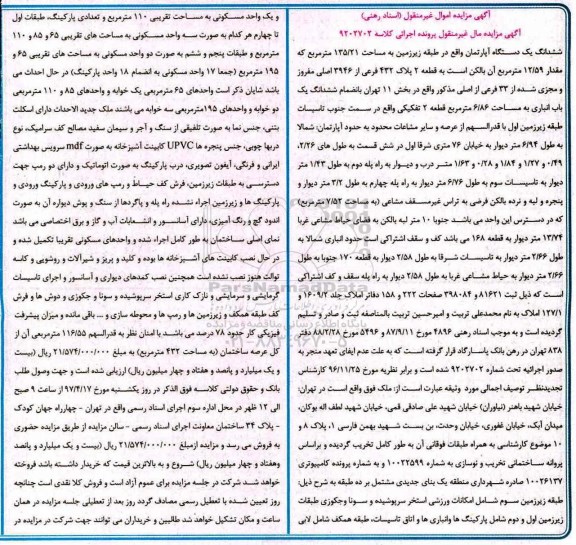 آگهی مزایده اموال غیرمنقول (اسناد رهنی)
آگهی مزایده مال غیرمنقول پرونده اجرائی کلاسه ۹۲۰۲۷۰۲
ششدانگ یک دستگاه آپارتمان واقع در طبقه زیرزمین به مساحت ۱۳۵/۲۱ مترمربع که
مقدار ۱۲/۵۹ مترمربع آن بالکن است به قطعه ۲ پلاک ۴۳۲ فرعی از ۳۹۴۶ اصلی مفروز
و مجزی شده از ۳۳ فرعی از اصلی مذکور واقع در بخش ۱۱ تهران بانضمام ششدانگ یک
باب انباری به مساحت ۶/۸۶ مترمربع قطعه ۲ تفکیکی واقع در سمت جنوب تاسیسات
طبقه زیرزمین اول با قدرالسهم از عرصه و سایر مشاعات محدود به حدود آپارتمان: شمالا
به طول ۶/۹۴ متر دیوار به خیابان ۷۶ متری شرقا اول در شش قسمت به طول های ۲/۲۶،
۰/۴۹ و ۱/۲۷ و ۱/۸۴ و ۰/۲۸ و ۱/۶۳ متر درب و دیوار به راه پله دوم به طول ۱/۴۳ متر
دیوار به تاسیسات سوم به طول ۶/۷۶ متر دیوار به راه پله چهارم به طول ۳/۲ متر دیوار و
پنجره و لبه و نرده بالکن فرضی به تراس غیرمسقف مشاعی (به مساحت ۷/۵۲ مترمربع)
که در دسترس این واحد می باشد جنوبا ۱۰ متر لبه بالکن به فضای حیاط مشاعی غربا
۱۳/۷۴ متر دیوار به قطعه ۱۶۸ می باشد کف و سقف اشتراکی است حدود انباری شمالا به
طول ۲/۶۶ متر دیوار به تاسیسات شرقا به طول ۲/۵۸ دیوار به قطعه ۱۷۰ جنوبا به طول
۲/۶۶ متر دیوار به حیاط مشاعی غربا به طول ۲/۵۸ دیوار به راه پله سقف و کف اشتراکی
است که ذیل ثبت ۸۱۶۲۱ و ۳۹۸۰۸۴ صفحات ۲۲۲ و ۱۵۸ دفاتر املاک جلد ۱۶۰۹/۲ و
۱۲۷/۱ املاک به نام محمدعلی تربیت و امیرحسین تربیت بالمناصفه ثبت و صادر و تسلیم
گردیده است و به موجب اسناد رهنی ۴۸۹۶ مورخ ۸۷/۹/۱۱ و ۵۴۹۶ مورخ ۸۸/۲/۲۸ دفتر
۸۳۸ تهران در رهن بانک پاسارگاد قرار گرفته است که به علت عدم ایفای تعهد منجر به
صدور اجرائیه تحت شماره ۹۲۰۲۷۰۲ شده است و برابر نظریه مورخ ۹۶/۱۱/۲۵ کارشناس
تجدیدنظر توصیف اجمالی مورد وثیقه عبارت است از: ملک فوق واقع است در تهران:
خیابان شهید باهنر (نیاوران) خیابان شهید علی صادقی قمی، خیابان شهید لطف اله بوکان،
میدان آبک، خیابان غفوری، خیابان وحدت، بن بست شهید بهمن فارسی ۱، پلاک ۸ و
۱۰ موضوع کارشناسی به همراه طبقات فوقانی آن به طور کامل تخریب گردیده و براساس
پروانه ساختمانی تخریب و نوسازی به شماره ۱۰۰۲۲۵۹۹ و به شماره پرونده کامپیوتری
۱۰۰۲۶۱۳۷ صادره شهرداری منطقه یک بنای جدیدی مشتمل بر ده طبقه به شرح ذیل:
طبقه زیرزمین سوم شامل امکانات ورزشی استخر سرپوشیده و سونا وجکوزی طبقات
زیرزمین اول و دوم شامل پارکینگ ها وانباری ها و اتاق تاسیسات، طبقه همکف شامل لابی
و یک واحد مسکونی به مساحت تقریبی ۱۱۰ مترمربع و تعدادی پارکینگ، طبقات اول
تا چهارم هر کدام به صورت سه واحد مسکونی به مساحت های تقریبی ۶۵ و ۸۵ و ۱۱۰
مترمربع و طبقات پنجم و ششم به صورت دو واحد مسکونی به مساحت های تقریبی ۶۵ و
۱۹۵ مترمربع (جمعا ۱۷ واحد مسکونی به انضمام ۱۸ واحد پارکینگ) در حال احداث می
باشد شایان ذکر است واحدهای ۶۵ مترمربعی یک خوابه و واحدهای ۸۵ و ۱۱۰ مترمربعی
دو خوابه و واحدهای ۱۹۵مترمربعی سه خوابه می باشند ملک جدید الاحداث دارای اسکلت
بتنی، جنس نما به صورت تلفیقی از سنگ و آجر و سیمان سفید مصالح کف سرامیک، نوع
دربها چوبی، جنس پنجره ها UPVC کابینت آشپزخانه به صورت mdf سرویس بهداشتی
ایرانی و فرنگی، آیفون تصویری، درب پارکینگ به صورت اتوماتیک و دارای دو رمپ جهت
دسترسی به طبقات زیرزمین، فرش کف حیاط و رمپ های ورودی و پارکینگ ورودی و
پارکینگ ها و زیرزمین اجراء نشده راه پله و پاگردها از سنگ و پوش دیواره آن به صورت
اندود گچ و رنگ آمیزی، دارای آسانسور و انشعابات آب و گاز و برق اختصاصی می باشد
نمای اصلی ساختمان به طور کامل اجراء شده و واحدهای مسکونی تقریبا تکمیل شده و
در حال نصب کابینت های آشپزخانه ها بوده و کلید و پریز و شیرآلات و روشویی و کاسه
توالت هنوز نصب نشده است همچنین نصب کمدهای دیواری و آسانسور و اجرای تاسیسات
گرمایشی و سرمایشی و نازک کاری استخر سرپوشیده و سونا و جکوزی و دوش ها و فرش
کف طبقه همکف و زیرزمین ها و رمپ ها و محوطه سازی و … باقی مانده و میزان پیشرفت
فیزیکی کار حدود ۷۸ درصد می باشد. با امنان نظر به قدرالسهم ۱۱۶/۵۵ مترمربعی آن از
کل عرصه ساختمان (به مساحت ۴۳۲ مترمربع) به مبلغ ۲۱/۵۷۴/۰۰۰/۰۰۰ ریال (بیست
و یک میلیارد و پانصد و هفتاد و چهار میلیون ریال) ارزیابی شده است و جهت وصول طلب
بانک و حقوق دولتی کلاسه فوق الذکر در روز یکشنبه مورخ ۹۷/۴/۱۷ از ساعت ۹ صبح
الی ۱۲ ظهر در محل اداره سوم اجرای اسناد رسمی واقع در تهران - چهارراه جهان کودک
- پلاک ۳۴ ساختمان معاونت اجرای اسناد رسمی - سالن مزایده از طریق مزایده حضوری
به فروش می رسد و مزایده ازمبلغ ۲۱/۵۷۴/۰۰۰/۰۰۰ ریال (بیست و یک میلیارد و پانصد
وهفتاد و چهار میلیون ریال) شروع و به بالاترین قیمت که خریدار داشته باشد فروخته
خواهد شد شرکت در جلسه مزایده برای عموم آزاد است و فروش کلا نقدی است چنانچه
روز تعیین شده با تعطیل رسمی مصادف گردد روز بعد از تعطیلی جلسه مزایده در همان
ساعت و مکان تشکیل خواهد شد طالبین و خریداران می توانند جهت شرکت در مزایده در
ParsNamadData
پایگاه اطلاع رسانی مناقصه و مزایده